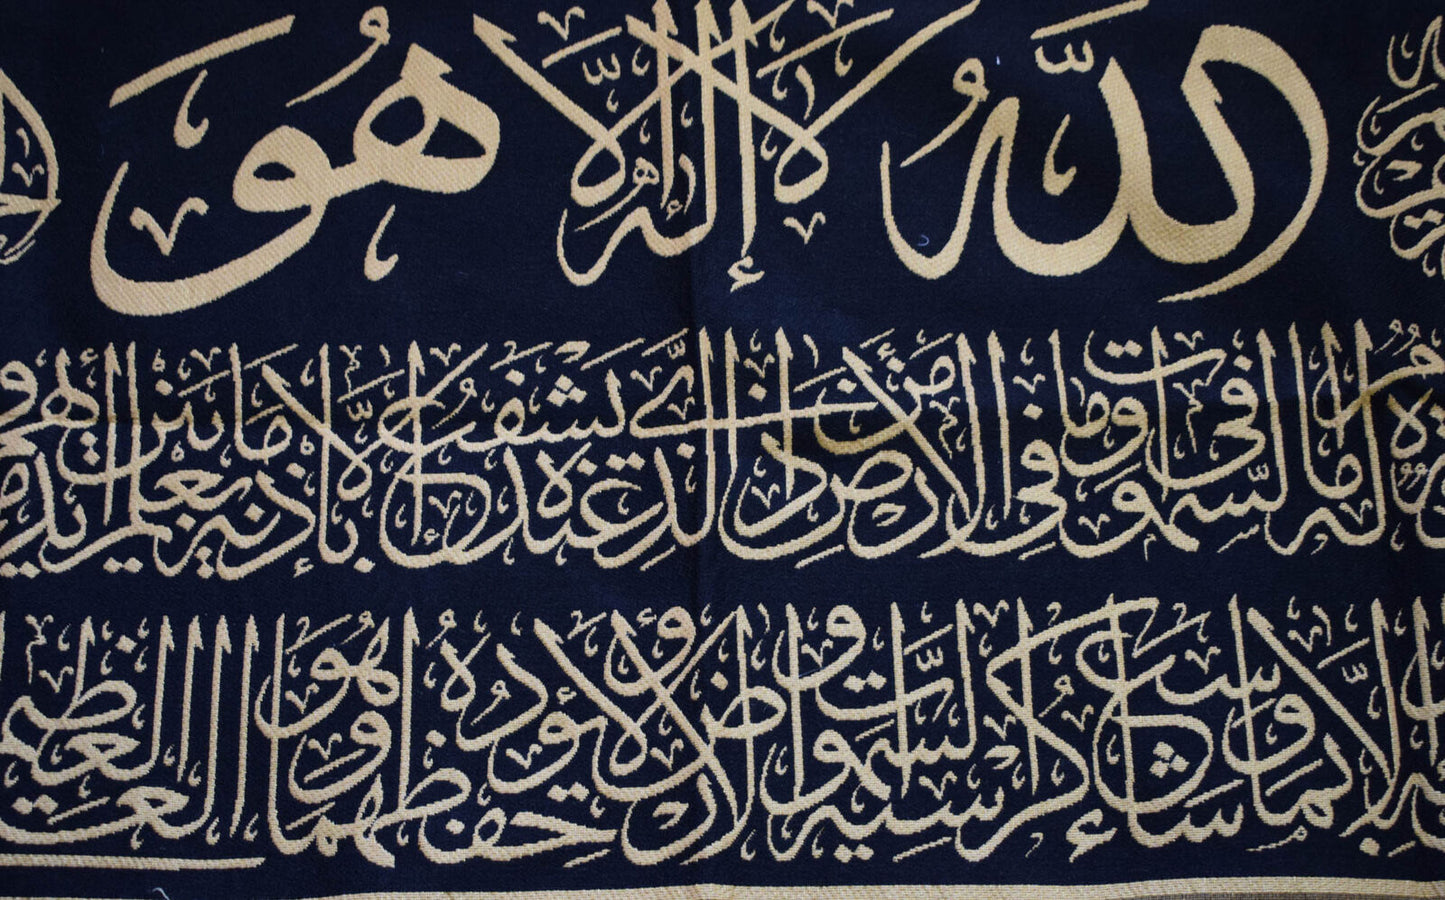 اللَّهُ لَا إِلَٰهَ إِلَّا هُوَ
لَهُ مَا فِي السَّمٰوَاتِ وَمَا فِي الْأَرْضِ مَنْ ذَا الَّذِي يَشْفَعُ عِنْدَهُ إِلَّا بِإِذْنِهِ يَعْلَمُ مَا بَيْنَ أَيْدِيهِمْ
إِلَّا بِمَا شَاءَ وَسِعَ كُرْسِيُّهُ السَّمٰوَاتِ وَالْأَرْضَ وَلَا يَئُودُهُ حِفْظُهُمَا وَهُوَ الْعَلِيُّ الْعَظِيمُ